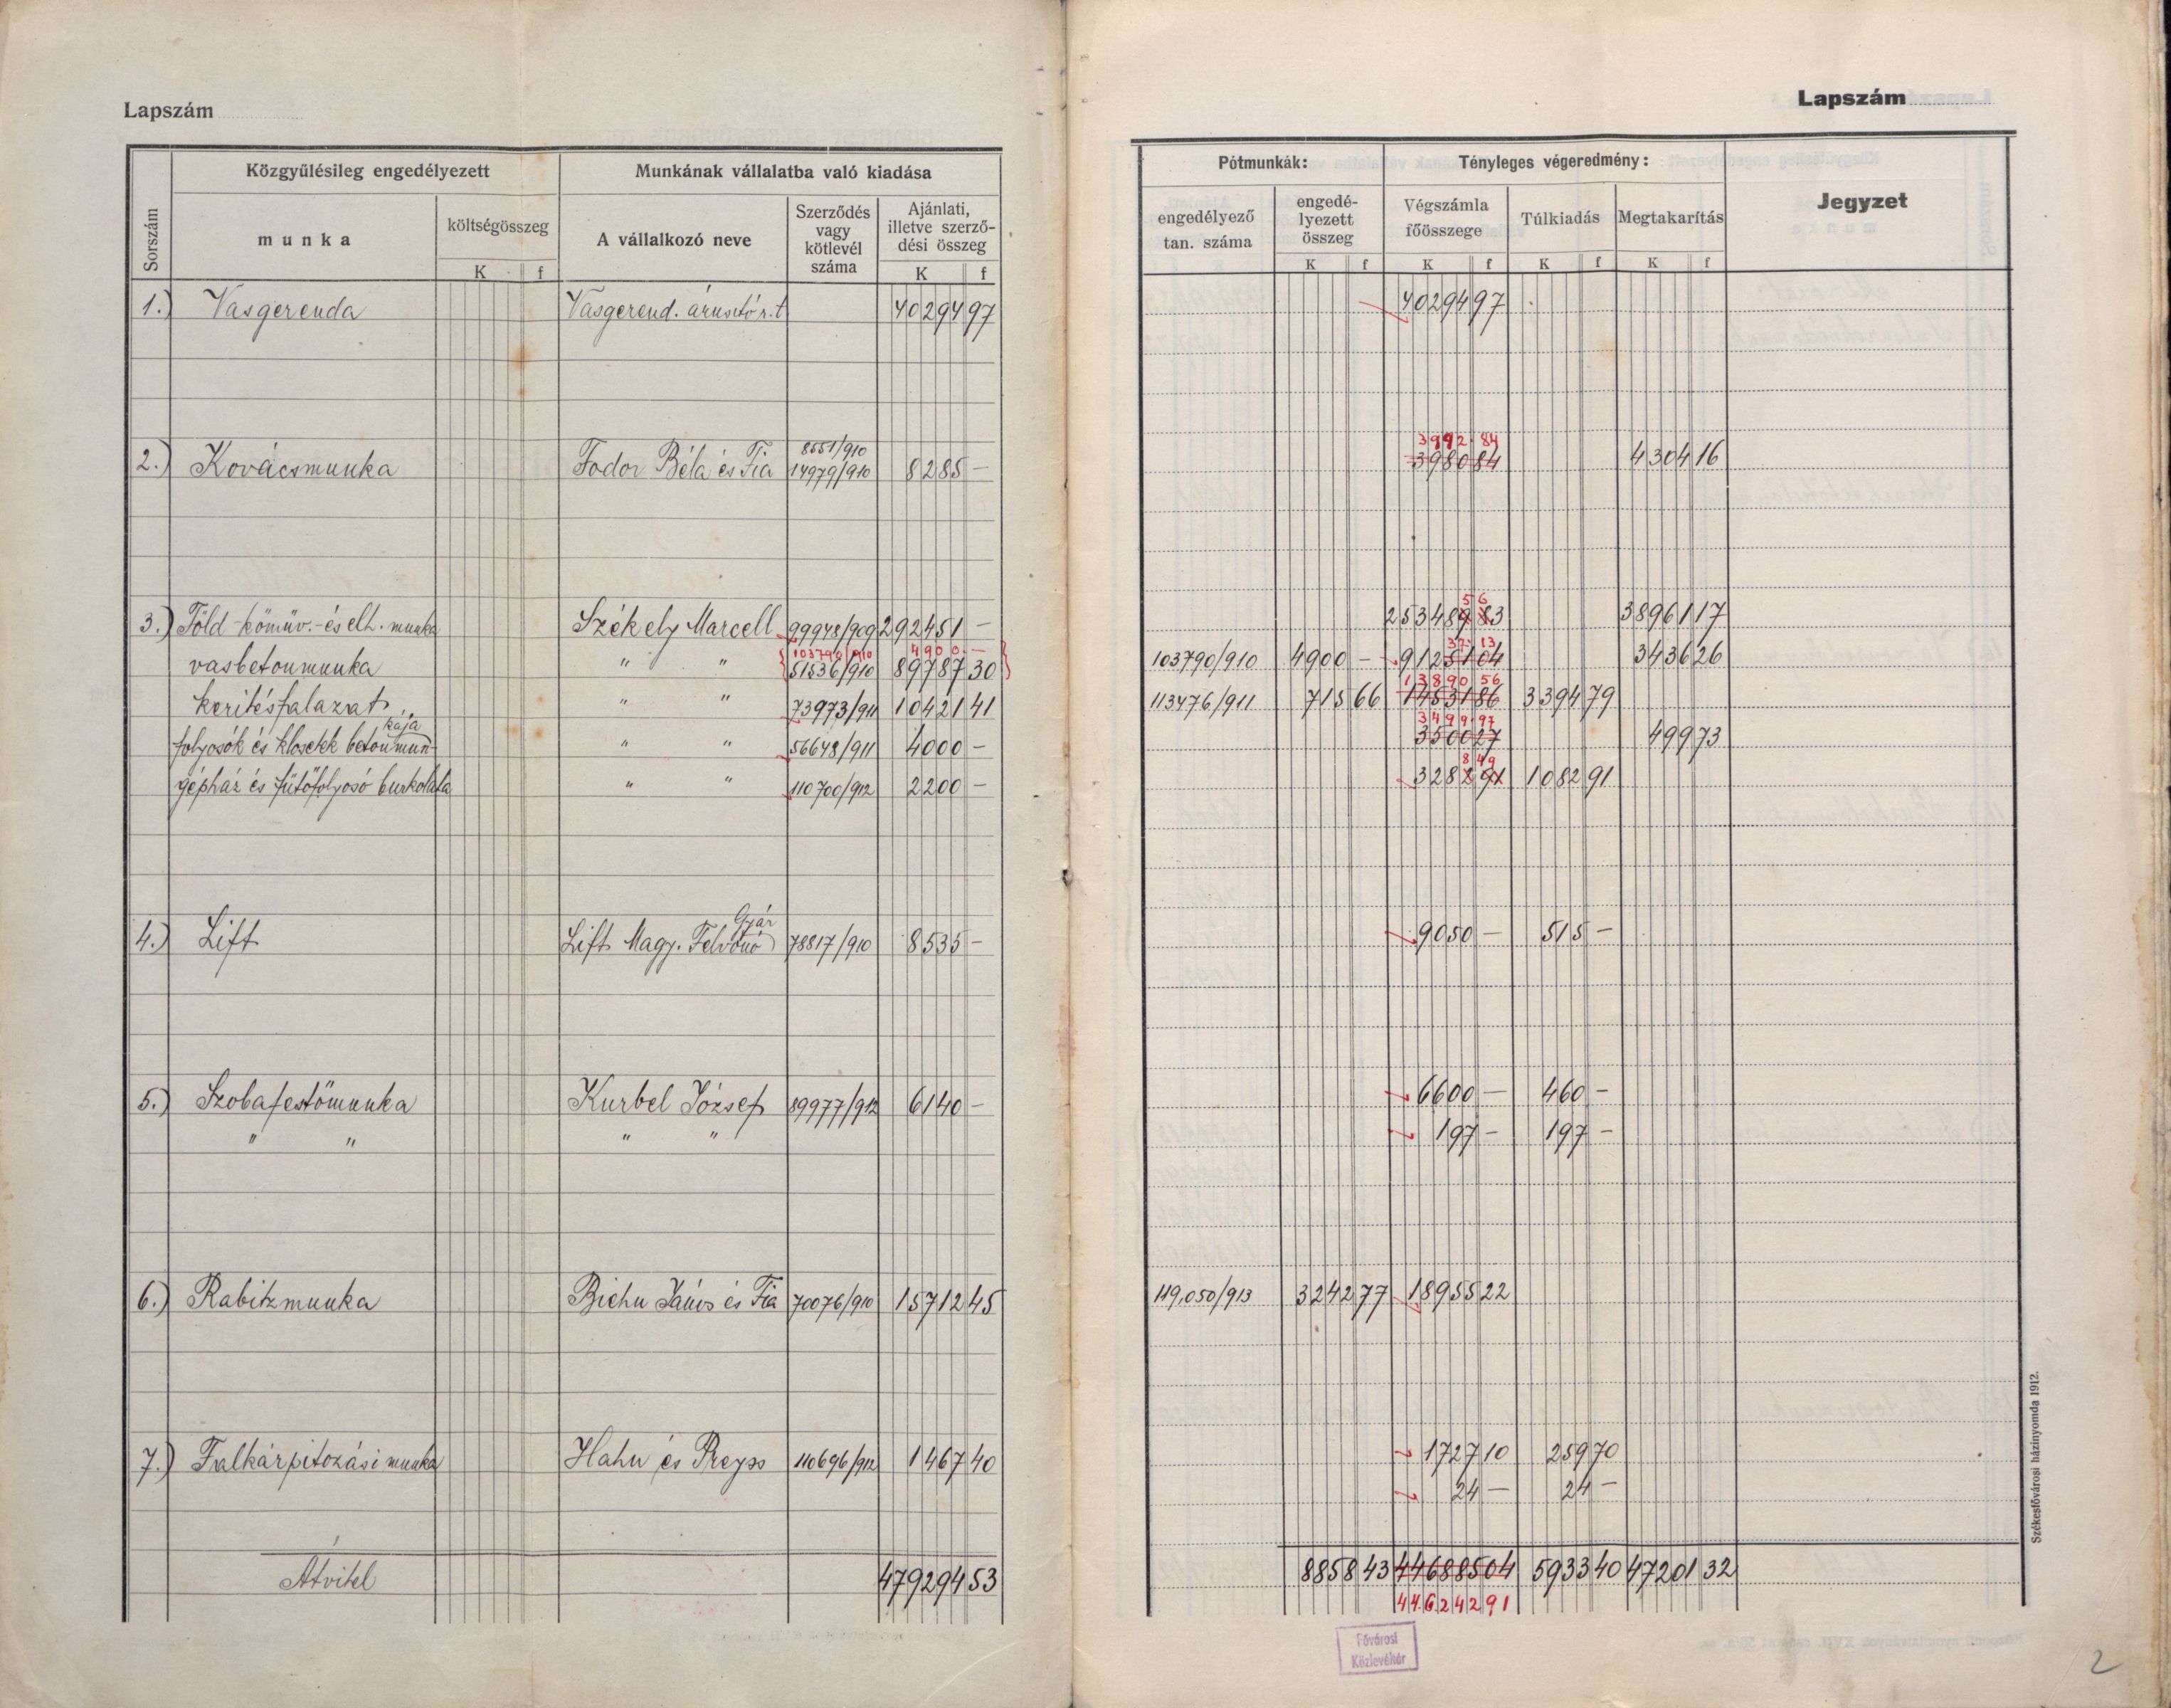 Lapszám
Sorszám
Közgyűlésileg engedélyezett
munka
költségösszeg
K f
Munkának vállalatba való kiadása
A vállalkozó neve
Szerződés vagy kötlevél száma
Ajánlati, illetve szerződési összeg
K f
1.) Vasgerenda Vasgerend. árusító r.t 40294 97
8551/910
2.) Kovácsmunka Fodor Béla és Fia 14979/910 8285 –
3.) Föld-kőműv.-és elh. munka Székely Marcell 99948/909 292451 –
103790/910 4900 –
vasbetonmunka " " 51536/910 89787 30
kerítésfalazat " " 73973/911 10421 41
kája
folyosók és klosettek betonmun- " " 56648/911 4000 –
gépház és fűtőfolyosó burkolata " " 110700/912 2200 –
Gyár
4.) Lift Lift Magy. Felvonó 78817/910 8535 –
5.) Szobafestőmunka Kurbel József 89977/912 6140 –
" " " "
6.) Rabitzmunka Biehn János és Fia 70076/910 15712 45
7.) Falkárpitozási munka Hahn és Preyss 110696/912 1467 40
Átvitel 479294 53
Lapszám
Pótmunkák:
engedélyező tan. száma
engedé-
lyezett
összeg
K f
Tényleges végeredmény:
Végszámla
főösszege
K f
Túlkiadás
K f
Megtakarítás
K f
Jegyzet
40294 97
3992.84
3980 84 4304 16
56
253489 83 38961 17
37.13
103790/910 4900 – 91251 04 3436 26
13890 56
113476/911 715 66 14531 86 3394 79
3499.97
3500 27 499 73
849
3282 91 1082 91
9050 – 515 –
6600 – 460 –
197 – 197 –
119,050/913 3242 77 18955 22
1727 10 259 70
24 – 24 –
8858 43 446885 04 5933 40 47201 32
446242 91
Fővárosi
Közlevéltár
Székesfővárosi házinyomda 1912.
2